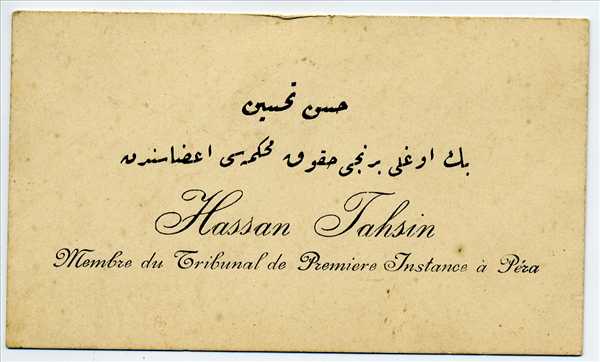 حسن تحسین
بك اوغلی برنجی حقوق محکمه‌سی اعضاسندن
Hassan Tahsin
Membre du Tribunal de Premiere Instance à Péra